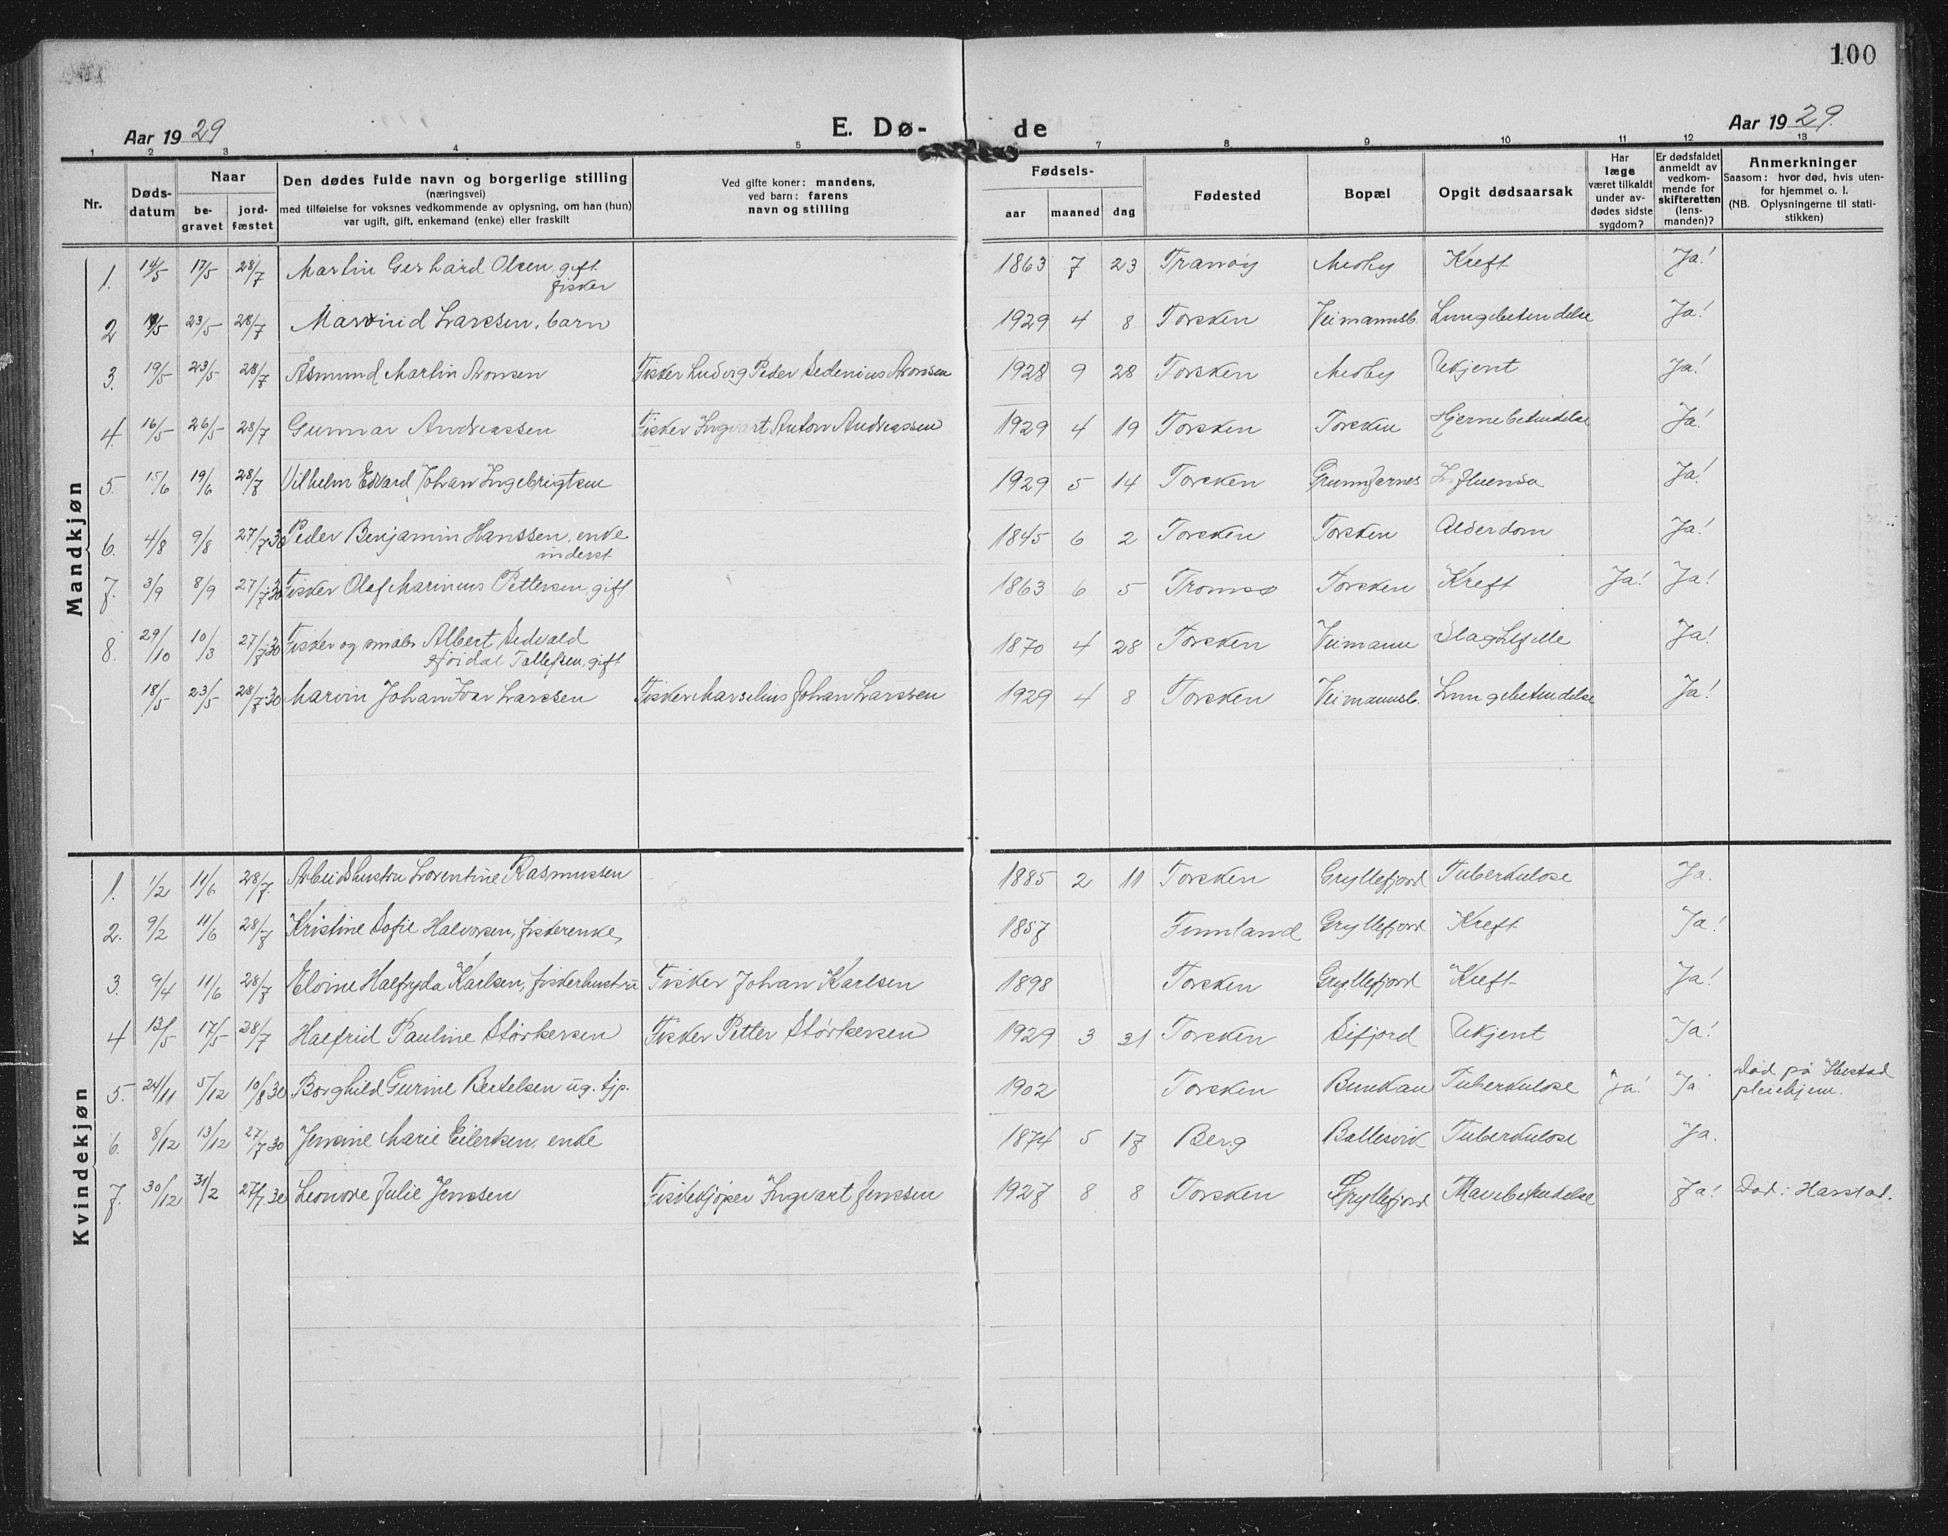 100
Aar 1929 E. Dø- de Aar 1929.
1 2 3 4 5 7 8 9 10 11 12 13
Nr. Døds-datum Naar be-gravet jord-fæstet Den dødes fulde navn og borgerlige stilling (næringsvei) med tilføielse for voksnes vedkommende av oplysning, om han (hun) var ugift, gift, enkemand (enke) eller fraskilt Ved gifte koner: mandens, ved barn: farens navn og stilling Fødsels- aar maaned dag Fødested Bopæl Opgit dødsaarsak Har læge været tilkaldt under av-dødes sidste sygdom? Er dødsfaldet anmeldt av vedkom-mende for skifteretten (lens-manden)? Anmerkninger Saasom: hvor død, hvis uten-for hjemmet o. l. (NB. Oplysningerne til stati-stikken)
Mandkjøn
1. 14/5 17/5 28/7 Martin Gerhard Olsen, gift fisker 1863 7 23 Tranøy Medby Kreft Ja!
2 23/5 28/7 Larssen, barn 1929 4 8 Torsken Veimannsb. Lungebetendelse Ja!
3. 19/5 23/5 28/7 Åsmund Martin Aronsen Fisker Ludvig Peder Sedenius Aronsen 1928 9 28 Torsken Medby Ukjent Ja!
4 16/5 26/5 28/7 Gunnar Andreassen Fisker Ingvart Anton Andreassen 1929 4 19 Torsken Torsken Hjernebetendelse Ja!
5. 15/6 19/6 28/8 Vilhelm Edvard Johan Ingebrigtsen 1929 5 14 Torsken Grunnfarnes Influensa Ja!
6. 4/8 9/8 27/7-30 Peder Benjamin Hanssen, enke inderst 1845 6 2 Torsken Torsken Alderdom Ja!
7. 3/9 8/9 27/7-30 Fisker Olaf Marinius Pettersen, gift 1863 6 5 Tromsø Torsken Kreft Ja! Ja!
8. 29/10 10/3 27/7-30 Fisker og småbr. Albert Sedvald Tollefsen, gift 1870 4 28 Torsken Veimann Slagtilfelle Ja!
18/5 23/5 28/7-30 Marvin Johan Ivar Larssen Fisker Marselius Johan Larssen 1929 4 8 Torsken Veimannsb. Lungebetendelse Ja!
Kvindekjøn
1. 1/2 11/6 28/7. Arbeidshustru Lorentine Rasmussen 1885 2 11 Torsken Gryllefjord Tuberkulose Ja.
2. 9/2 11/6 28/7 Kristine Sofie Halvorsen, fiskerenke, 1857 Finnland Gryllefjord Kreft Ja!
3. 9/4 11/6 28/7 Elvine Halfryda Karlsen, fiskerhustru Fisker Johan Karlsen 1898 Torsken Gryllefjord Kreft Ja!
4 13/5 17/5 28/7 Halfrid Pauline Størkersen Fisker Petter Størkersen 1929 3 31 Torsken Sifjord Ukjent Ja!
5. 24/11 5/12 10/8 30 Borghild Gurine Bertelsen ug. tjp. 1902 Torsken Bunkan Tuberkulose Ja! Ja Død på Ibestad pleiehjem.
6. 8/12 13/12 27/7-30 Jensine Marie Eilertsen, enke 1874 5 17 Berg Ballesvik Tuberkulose Ja.
7. 30/12 31/2 27/7 30 Leonore Julie Jenssen Fiskekjøper Ingvart Jenssen 1927 8 8 Torsken Gryllefjord Ja! Død i Harstad.